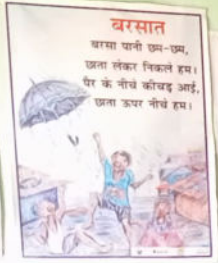 बरसात
बरसा पानी छम-छम,
छाता लेकर निकले हम।
पैर के नीचे कीचड़ आई,
छाता ऊपर नीचे हम।